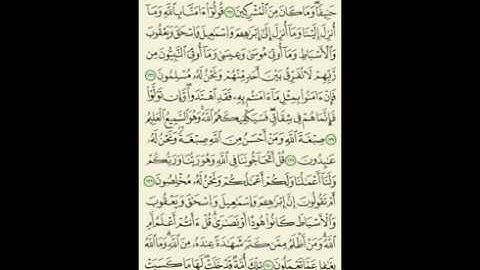 حَنِيفًا وَمَا كَانَ مِنَ الْمُشْرِكِينَ ﴿١٣٥﴾ قُولُوا آمَنَّا بِاللَّهِ وَمَا
أُنزِلَ إِلَيْنَا وَمَا أُنزِلَ إِلَىٰ إِبْرَاهِيمَ وَإِسْمَاعِيلَ وَإِسْحَاقَ وَيَعْقُوبَ
وَالْأَسْبَاطِ وَمَا أُوتِيَ مُوسَىٰ وَعِيسَىٰ وَمَا أُوتِيَ النَّبِيُّونَ مِن
رَّبِّهِمْ لَا نُفَرِّقُ بَيْنَ أَحَدٍ مِّنْهُمْ وَنَحْنُ لَهُ مُسْلِمُونَ ﴿١٣٦﴾
فَإِنْ آمَنُوا بِمِثْلِ مَا آمَنتُم بِهِ فَقَدِ اهْتَدَوا وَّإِن تَوَلَّوْا
فَإِنَّمَا هُمْ فِي شِقَاقٍ فَسَيَكْفِيكَهُمُ اللَّهُ وَهُوَ السَّمِيعُ الْعَلِيمُ
﴿١٣٧﴾ صِبْغَةَ اللَّهِ وَمَنْ أَحْسَنُ مِنَ اللَّهِ صِبْغَةً وَنَحْنُ لَهُ
عَابِدُونَ ﴿١٣٨﴾ قُلْ أَتُحَاجُّونَنَا فِي اللَّهِ وَهُوَ رَبُّنَا وَرَبُّكُمْ
وَلَنَا أَعْمَالُنَا وَلَكُمْ أَعْمَالُكُمْ وَنَحْنُ لَهُ مُخْلِصُونَ ﴿١٣٩﴾
أَمْ تَقُولُونَ إِنَّ إِبْرَاهِيمَ وَإِسْمَاعِيلَ وَإِسْحَاقَ وَيَعْقُوبَ
وَالْأَسْبَاطَ كَانُوا هُودًا أَوْ نَصَارَىٰ قُلْ أَأَنتُمْ أَعْلَمُ أَمِ
اللَّهُ وَمَنْ أَظْلَمُ مِمَّن كَتَمَ شَهَادَةً عِندَهُ مِنَ اللَّهِ وَمَا اللَّهُ
بِغَافِلٍ عَمَّا تَعْمَلُونَ ﴿١٤٠﴾ تِلْكَ أُمَّةٌ قَدْ خَلَتْ لَهَا مَا كَسَبَتْ